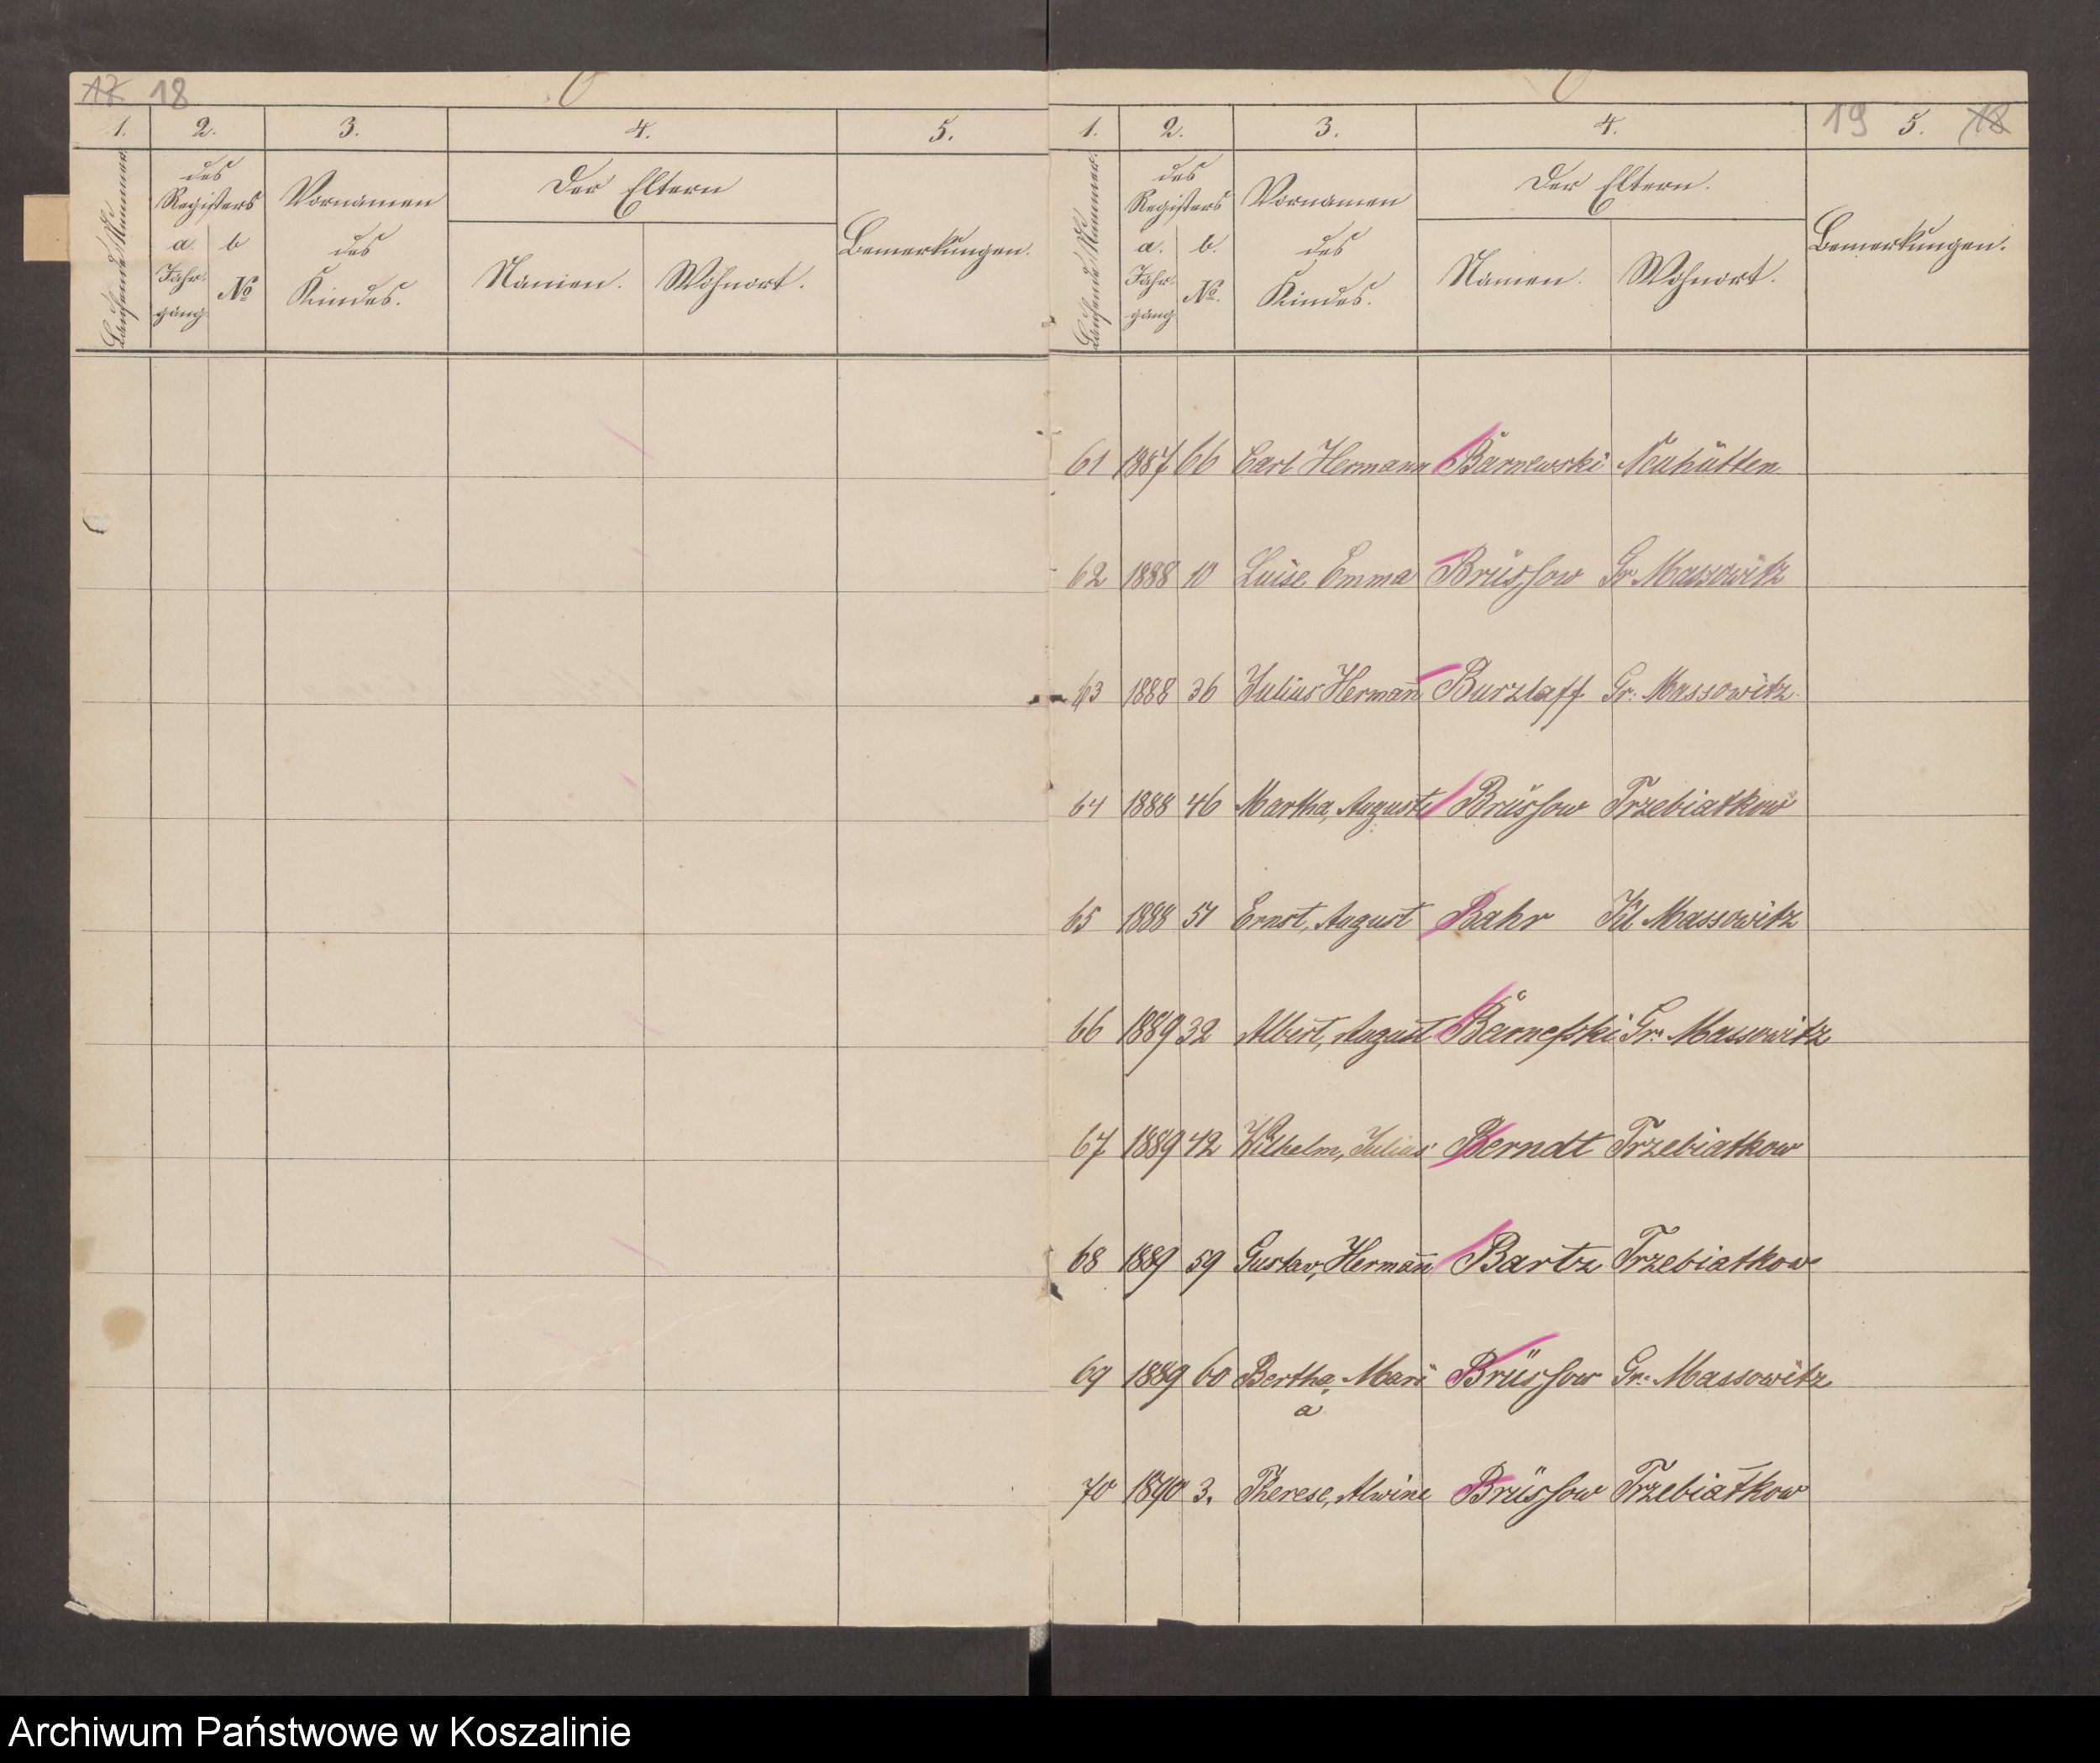 17 18
1. 2. 3. 4. 5.
Laufende Nummer.
des Registers
a. Jahrgang.
b No
Vornamen des Kindes.
Der Eltern
Namen. Wohnort.
Bemerkungen.
19 18
1. 2. 3. 4. 5.
Laufende Nummer.
des Registers
a. Jahrgang
b. No.
Vornamen des Kindes.
Der Eltern.
Namen. Wohnort.
Bemerkungen.
61 1887 66 Carl Hermann Barnewski Neuhütten
62 1888 10 Luise Emma Brüssow Gr Massowitz
63 1888 36 Julius Hermañ Burzlaff Gr. Massowitz.
64 1888 46 Martha, Auguste Brüssow Trzebiatkow
65 1888 51 Ernst, August Bahr Kl Massowitz
66 1889 32 Albert, August Barnefski Gr. Massowitz
67 1889 42 Wilhelm, Julius Berndt Trzebiatkow
68 1889 59 Gustav, Hermañ Bartz Trzebiatkow
69 1889 60 Bertha, Mari Brüssow Gr. Massowitz
a
70 1890 3. Therese, Alwine Brüssow Trzebiatkow
Archiwum Państwowe w Koszalinie